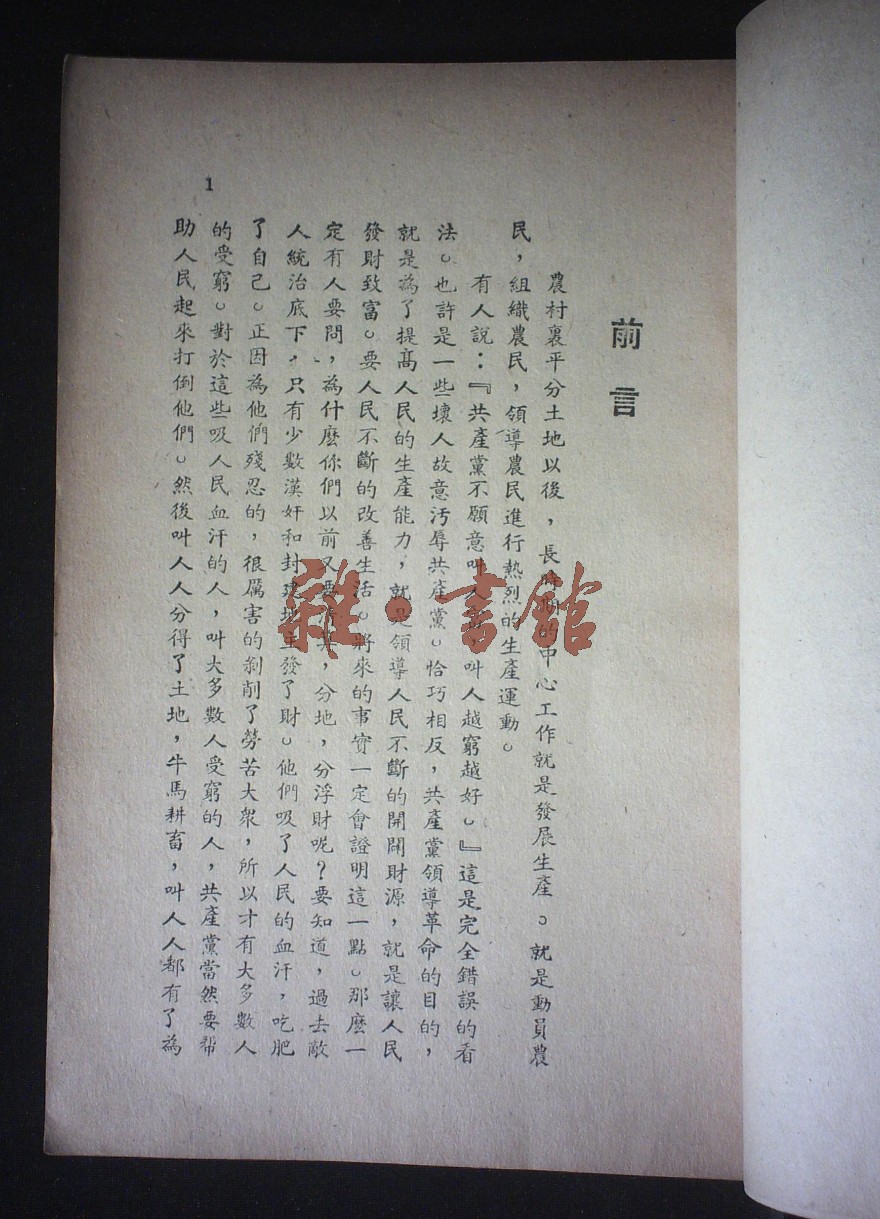 前言
農村裏平分土地以後，長時期的中心工作就是發展生產。就是動員農
民，組織農民，領導農民進行熱烈的生產運動。
有人說：『共產黨不願意叫人富，叫人越窮越好。』這是完全錯誤的看
法。也許是一些壞人故意汚辱共產黨。恰巧相反，共產黨領導革命的目的，
就是為了提高人民的生產能力，就是領導人民不斷的開闢財源，就是讓人民
發財致富。要人民不斷的改善生活。將來的事實一定會證明這一點。那麽一
定有人要問，為什麽你們以前又要，分地，分浮財呢？要知道，過去敵
人統治底下，只有少數漢奸和封建地主發了財。他們吸了人民的血汗，吃肥
了自己。正因為他們殘忍的，很厲害的剝削了勞苦大衆，所以才有大多數人
的受窮。對於這些吸人民血汗的人，叫大多數人受窮的人，共產黨當然要帮
助人民起來打倒他們。然後叫人人分得了土地，牛馬耕畜，叫人人都有了為
1
雜·書館